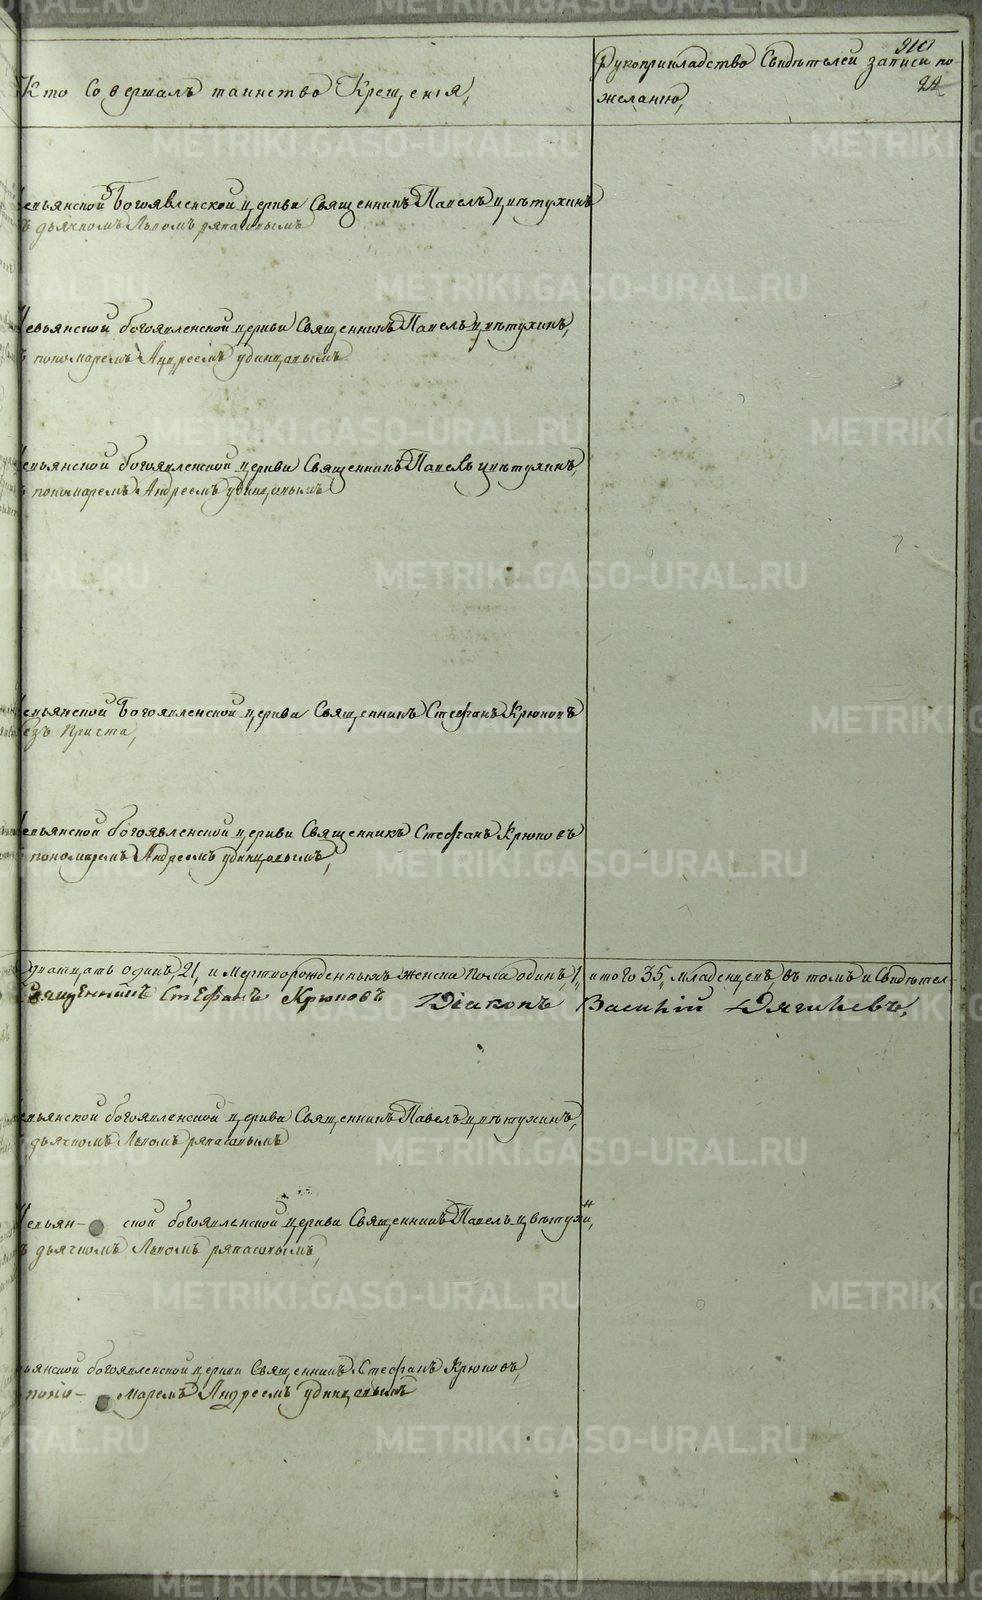 Кто Совершалъ таинство Крещенія,
Рукоприкладство Свидѣтелей записи по
желанію,
Невьянской Богоявленской церкви Священникъ Павелъ Цвѣтухинъ
съ дьячкомъ Львомъ
Невьянской богоявленской церкви Священникъ Павелъ Цвѣтухинъ,
съ пономаремъ Андреемъ удинцовымъ
Невьянской богоявленской церкви Священникъ Павелъ Цвѣтухинъ,
съ пономаремъ Андреемъ удинцовымъ
Невьянской Богоявленской церкви Священникъ Стефанъ Крюковъ
безъ причта,
Невьянской богоявленской церкви Священникъ Стефанъ Крюковъ
съ пономаремъ Андреемъ удинцовымъ,
Дватцать одинъ, 21, и Мертворожденныхъ женска пола одинъ, 1, итого 35, младенцевъ, въ томъ и Свидѣтел-
Священникъ Стефанъ Крюковъ Діаконъ Василій Дягилевъ,
Невьянской богоявленской церкви Священникъ Павелъ Цвѣтухинъ,
съ дьячкомъ Львомъ
Невьян- ской богоявленской церкви Священникъ Павелъ Цвѣтухинъ,
съ дьячкомъ Львомъ
Невьянской богоявленской церкви Священникъ Стефанъ Крюковъ,
съ поно- маремъ Андреемъ удинцовымъ
METRIKI.GASO-URAL.RU